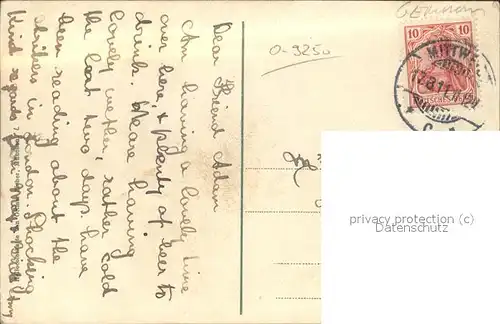 Dear Friend Adam
Am having a lovely time
over here, & plenty of beer to
drink. We are having
lovely wether, rather cold
the last two days. have
been reading about the
strikers in London. Shocking
Kind regards
German
O-9250
10
10
MITTW
17.8.11
privacy protection (c)
Datenschutz